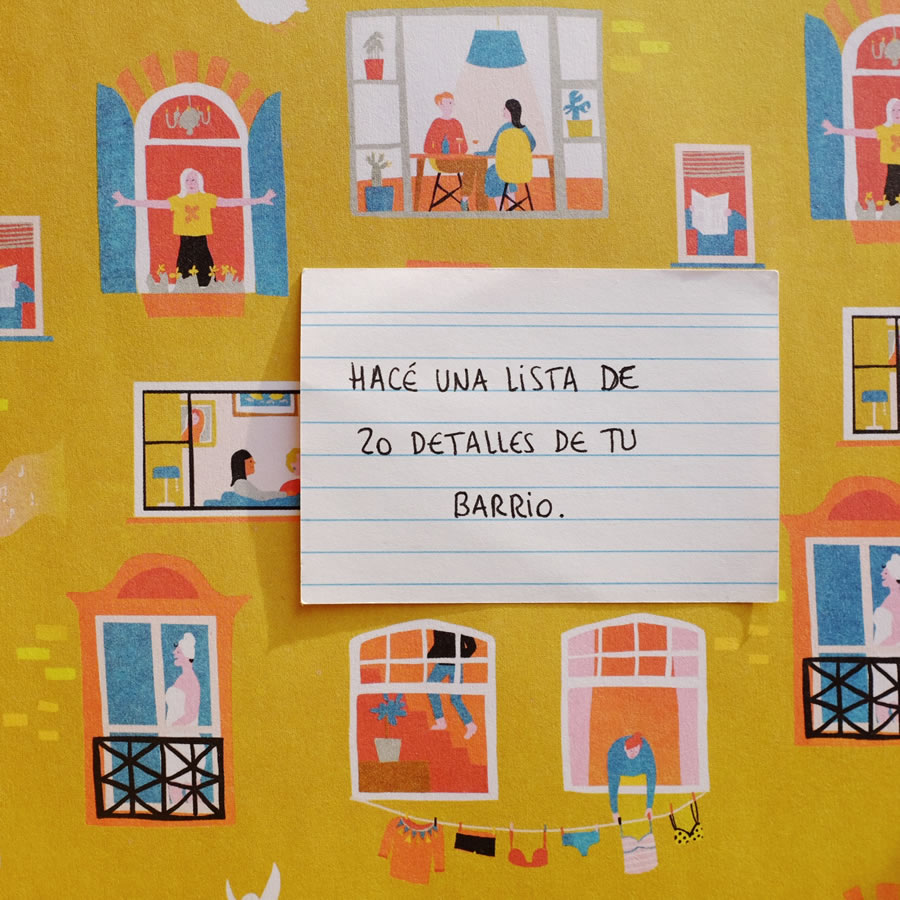 HACÉ UNA LISTA DE
20 DETALLES DE TU
BARRIO.